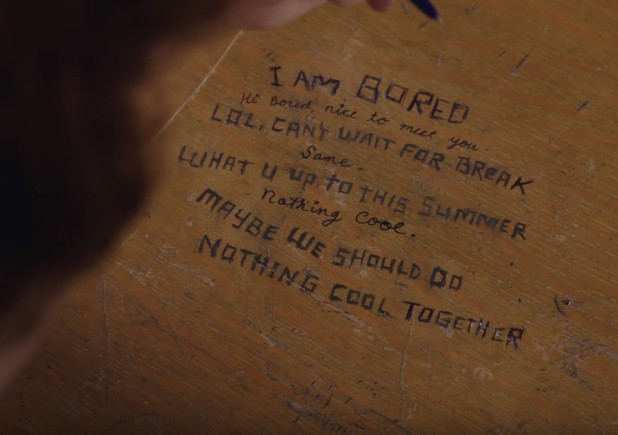 I AM BORED
Hi Bored, nice to meet you.
LOL, CAN'T WAIT FOR BREAK
Same.
WHAT U UP TO THIS SUMMER
Nothing Cool.
MAYBE WE SHOULD DO
NOTHING COOL TOGETHER